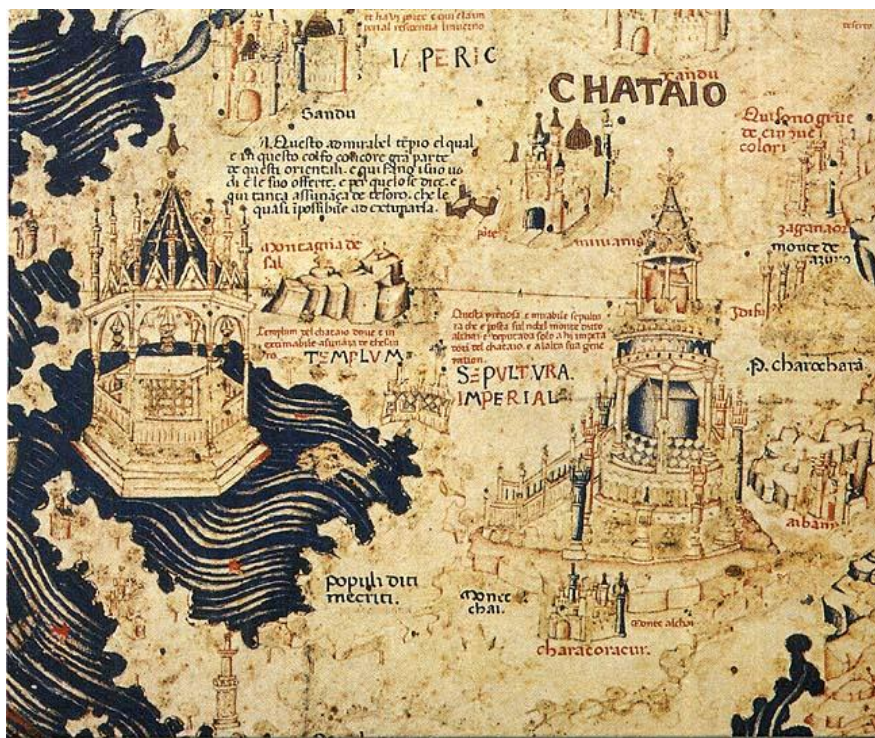 et ha vi
I/ PERIC
Sandu
CHATAIO
Xandu
deserto
Qui sono grue
de cinque
colori
Questo admirabel tēpio el qual
e in questo colfo concore grā parte
de questi orientali. e qui fano i suo uo
di e le suo offerte. e per quelo se dice. e
qui tanta assunāça de tesoro. che le
quasi īpossibile ad extimarla.
pōte
zaganaor
monte de
azuro
Montagna de
sal
Templum del chataio doue e in
extimabile asunāza de thesau
ro.
TEMPLVM
Questa preciosa e mirabile sepultu
ra che e posta sul monte dito
alchai e deputada solo a hi impera
dori del chataio. e a lalta sua gene
ration.
SEPVLTVRA.
IMPERIAL
.P. charochara
Albani
populi diti
mecriti.
Monte
chai.
Monte alchai
characoracur.